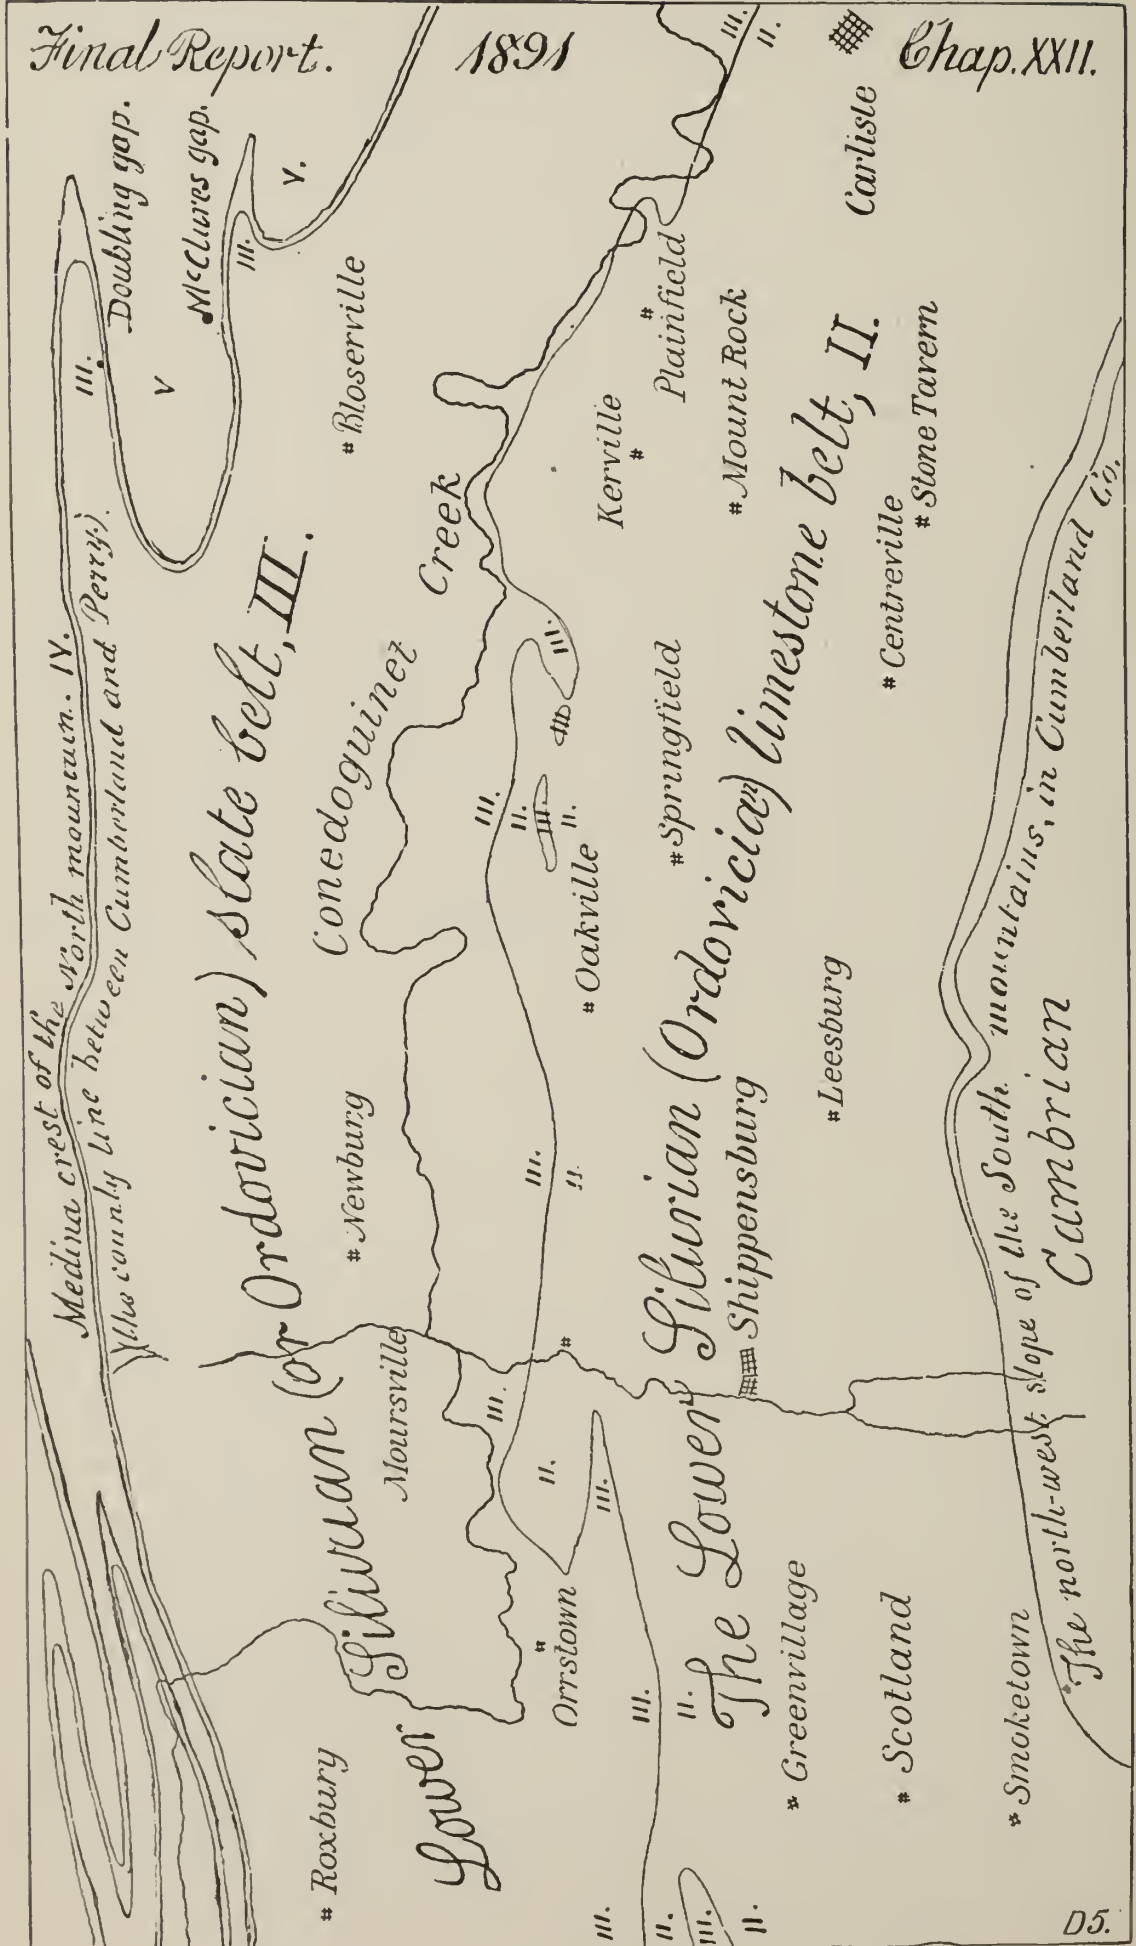 Final Report.
1891
Chap. XXII.
Medina crest of the North mountain. IV.
the county line between Cumberland and Perry).
Doubling gap.
McClures gap.
III.
V
III.
V.
Lower Silurian (or Ordovician) slate belt, III.
Roxbury
Moursville
Newburg
Bloserville
Conedoguinet Creek
III.
II.
III.
II.
III.
II.
III.
III.
II.
III.
II.
III.
III.
III.
II.
Orrstown
Oakville
Kerville
Plainfield
Springfield
Mount Rock
Carlisle
III.
II.
III.
II.
III.
II.
The Lower Silurian (Ordovician) limestone belt, II.
Shippensburg
Greenvillage
Scotland
Leesburg
Centreville
Stone Tavern
Smoketown
The north-west slope of the South mountains, in Cumberland Co.
Cambrian
D5.